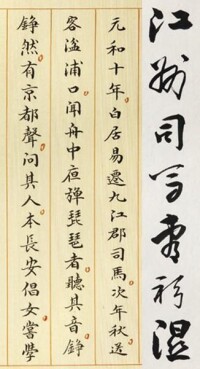 江州司馬青衫濕
元和十年白居易遷九江郡司馬次年秋送
客湓浦口聞舟中夜彈琵琶者聽其音錚
錚然有京都聲問其人本長安倡女嘗學